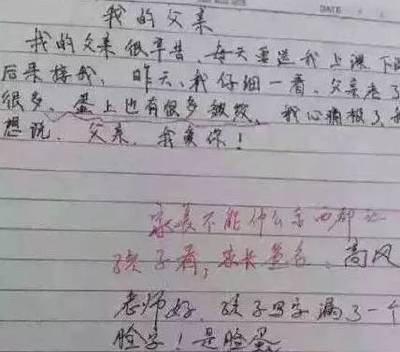 DATE
我的父亲
我的父亲很辛苦,每天要送我上课 下课
后来接我,昨天,我仔细一看,父亲老了
很多,蛋上也有很多皱纹,我心痛极了,我
想说,父亲,我爱你!
家长不能什么东西都让
孩子看,家长签名:高风
老师好,孩子写字漏了一个
脸字!是脸蛋